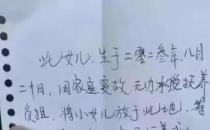 此女儿,生于二零二叁年八月
二十日,因家庭变故无力承脱抚养
负担,将小女儿放于此地,等